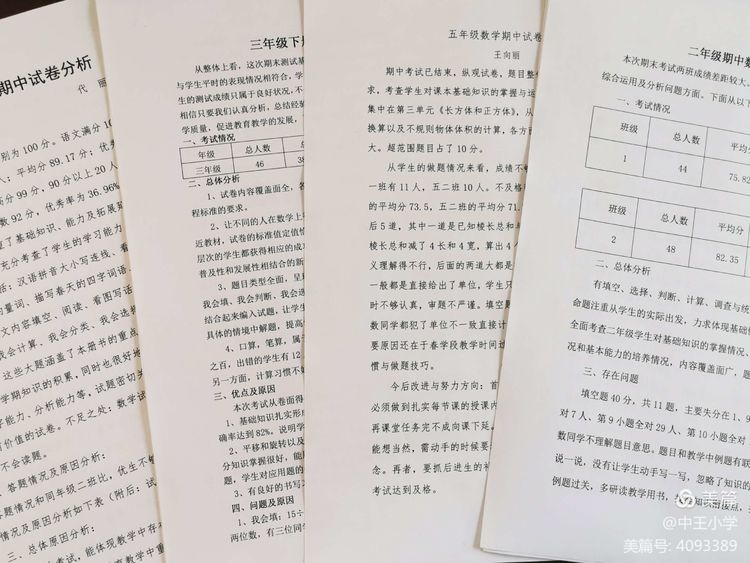 期中试卷分析
代 丽
别为 100 分。语文满分 10
人；平均分 89.17 分；优秀
高分 99 分，90 分以上 20 人
数 92 分，优秀率为 36.96%
了基础知识、能力及拓展延
充分考查了学生的学习能力
括：汉语拼音大小写连线、看
的量词、描写春天的四字词语、
文内容填空、阅读、看图写话
我会计算、我会分类、我会选择
这些大题涵盖了本册书的重点
学期知识的积累，同时也很好地
字能力、分析能力等，试题密切关
有价值的试卷。不足之处：数学试
不会读题。
答题情况及原因分析：
答题情况和同年级二班比，优生不够
情况及原因分析如下表（附后：试
三、总体原因分析：
考试，能体现教学中存
教学中重
三年级下册
从整体上看，这次期末测试基
与学生平时的表现情况相符合，学
生的测试成绩只属于良好状况，不
相信只要我们认真分析，总结经验
学质量，促进教育教学的发展，
一、考试情况
年级 总人数
三年级 46 38
二、总体分析
1、试卷内容覆盖面全，各
程标准的要求。
2、让不同的人在数学上
近教材，试卷的标准值定值恰
层次的学生都获得相应的成功
普及性和发展性相结合的新
3、题目类型全面，呈现
我会填、我会判断、我会选
结合起来编入试题，让学生
具体的情境中解题，提高
4、口算，笔算，属于
之百，出错的学生有 12
另一方面，计算习惯不好
三、优点及原因
本次考试从卷面得
1、基础知识扎实形成
确率达到 82%。说明学
2、平移和旋转以及
分知识掌握很好，能
题，学生对应用题的
3、有良好的书写习
四、问题及原因
1、我会填：15÷
两位数，有三位同学
五年级数学期中试卷
王向丽
期中考试已结束，纵观试卷，题目整
求，考查学生对课本基础知识的掌握与运
集中在第三单元《长方体和正方体》，从
换算以及不规则物体体积的计算，各方面
大。超范围题目占了 10 分。
从学生的做题情况来看，成绩不够
一班有 11 人，五二班 10 人。不及格
的平均分 73.5，五二班的平均分 71.
后 5 道，其中一道是已知棱长总和与
棱长总和减了 4 长和 4 宽，算出 4 个
义理解得不行，后面的两道大都是
一般都是直接给出了单位，学生只
时不够认真，审题不严谨。填空题
数同学都犯了单位不一致直接计
要原因还在于春学段教学时间
惯与做题技巧。
今后改进与努力方向：首
必须做到扎实每节课的授课内
再课堂任务完不成向课下延。
能想当然，需动手的时候要
念。再者，要抓后进生的补
考试达到及格。
二年级期中数
本次期末考试两班成绩差距较大。
综合运用及分析问题方面。下面从以下
一、考试情况
班级 总人数 平均分
1 44 75.82
班级 总人数 平均分
2 48 82.35
二、总体分析
有填空、选择、判断、计算、调查与统
命题注重从学生的实际出发，力求体现基础
全面考查二年级学生对基础知识的掌握情况、
况和基本能力的培养情况，内容覆盖面广，题
三、存在问题
填空题 40 分，共 11 题，主要失分在 1、9
对 7 人、第 9 小题全对 29 人、第 10 小题全对
数同学不理解题目意思。题目和教学中例题有联
说一说，没有让学生动手写一写，忽略了知识的
例题过关，多研读教学用书，
美篇
@中王小学
美篇号: 4093389